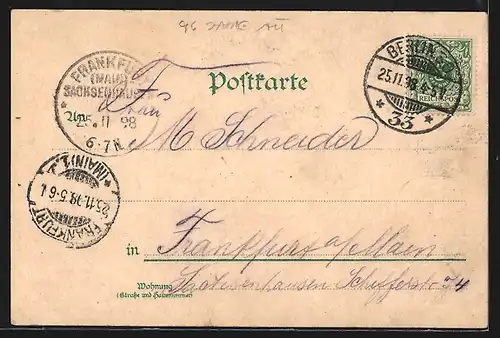 96 SAME AU
FRANKFURT
(MAIN)
SACHSENHAUSEN
25.11 98
6-7N
BERLIN
25.11.98.4-5N
* 33 *
REICHSPOST
Postkarte
An
Frau
M Schneider
FRANKFURT
25.11.98.5-6
*(MAIN)1
in Frankfurt a/Main
Sachsenhausen Schifferstr 74
Wohnung
(Straße und Hausnummer)